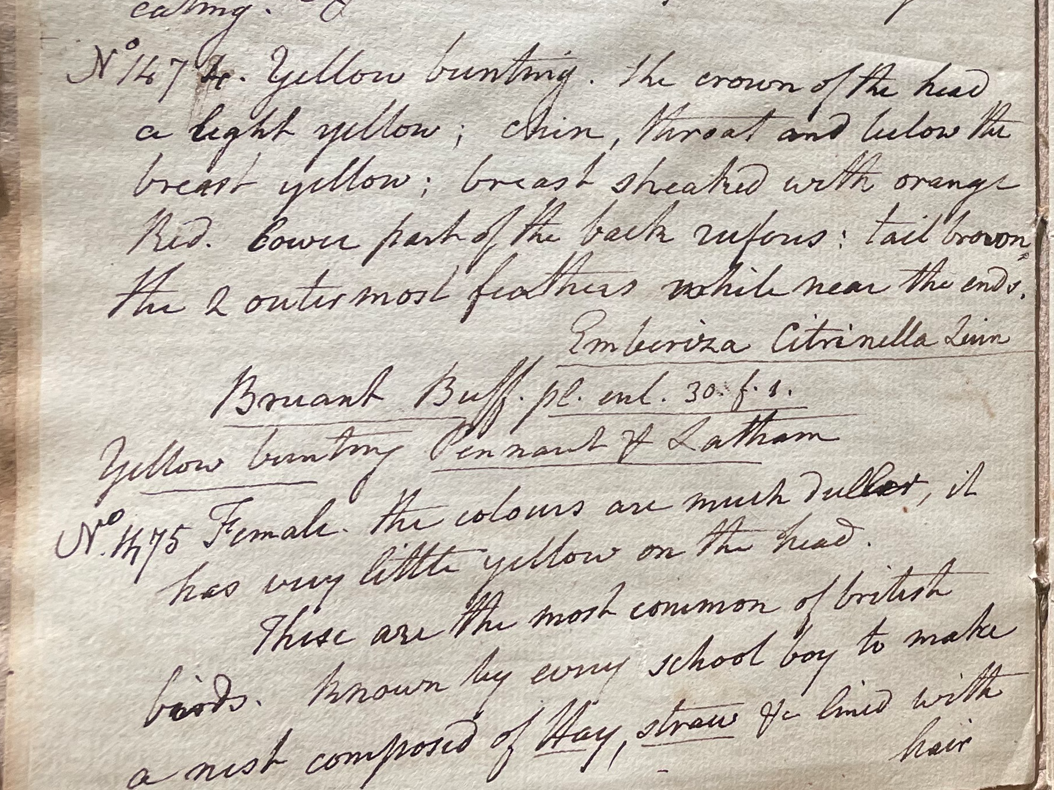 eating. &
No 1474. Yellow bunting. the crown of the head
a light yellow; chin, throat and below the
breast yellow; breast streaked with orange
Red. Lower part of the back rufous: tail brown
the 2 outermost feathers white near the ends.
Emberiza Citrinella Linn
Bruant Buff. pl. enl. 30. f. 1.
Yellow bunting Pennant & Latham
No. 1475 Female. the colours are much duller, it
has very little yellow on the head.
These are the most common of british
birds. Known by every school boy to make
a nest composed of Hay, straw &c lined with
hair